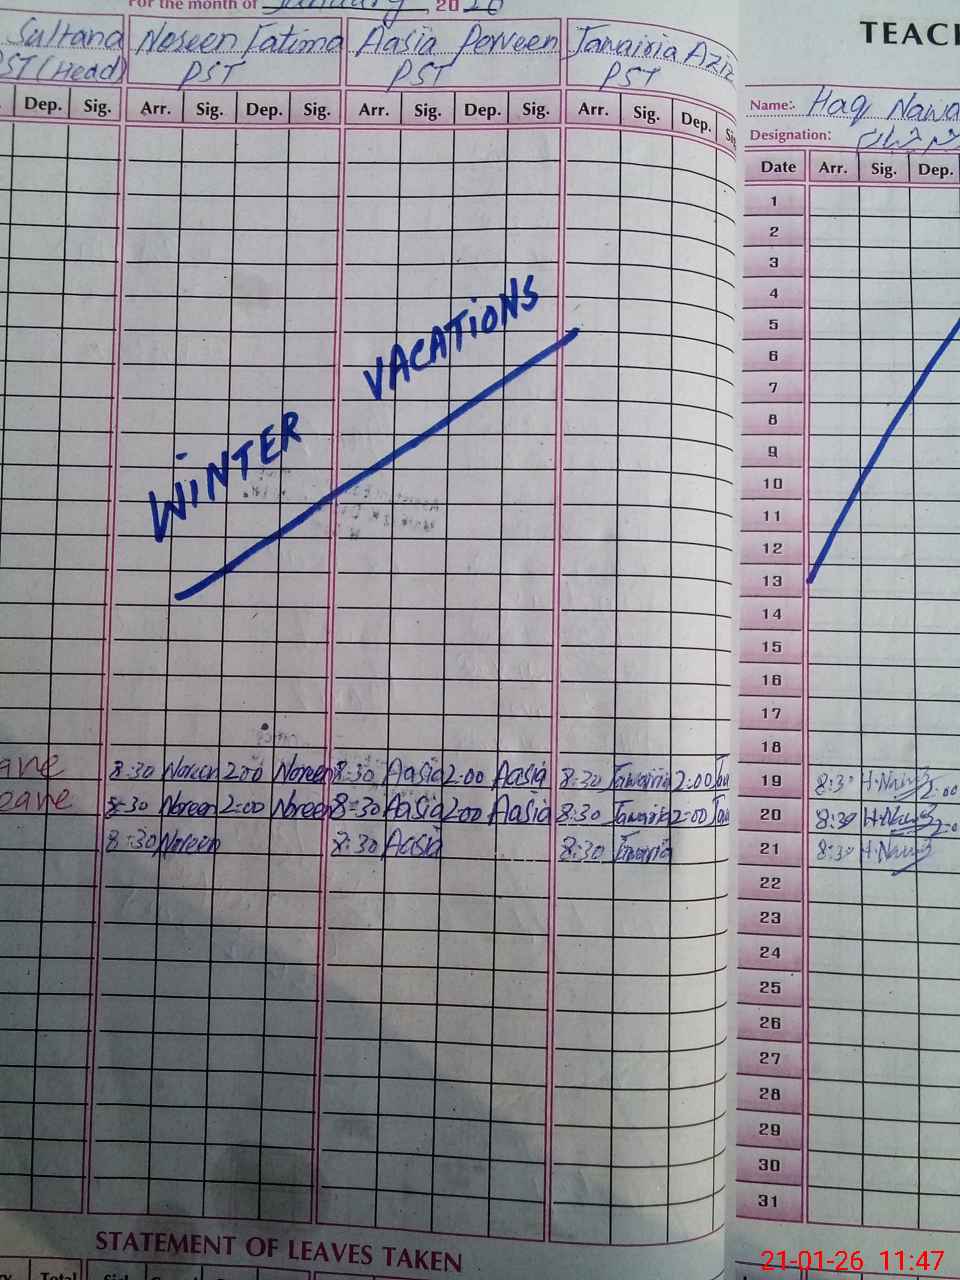 For the month of January, 2026
TEAC
Sultana Noreen Fatima Aasia Perveen Jawairia Aziz
PST (Head) PST PST PST
Name:- Haq Nawa
Designation:
Dep. Sig. Arr. Sig. Dep. Sig. Arr. Sig. Dep. Sig. Arr. Sig. Dep. Sig
Date Arr. Sig. Dep.
1
2
3
4
5
6
7
8
9
10
11
12
13
14
15
16
17
18
WINTER VACATIONS
8:30 Noreen 2:00 Noreen 8:30 Aasia 2:00 Aasia 8:30 Jawairia 2:00 Jaw 19 8:30 H.Nawaz 2:00
8:30 Noreen 2:00 Noreen 8:30 Aasia 2:00 Aasia 8:30 Jawairia 2:00 Jaw 20 8:30 H.Nawaz 2:0
8:30 Noreen 8:30 Aasia 8:30 Jawairia 21 8:30 H.Nawaz
22
23
24
25
26
27
28
29
30
31
STATEMENT OF LEAVES TAKEN
Total
21-01-26 11:47